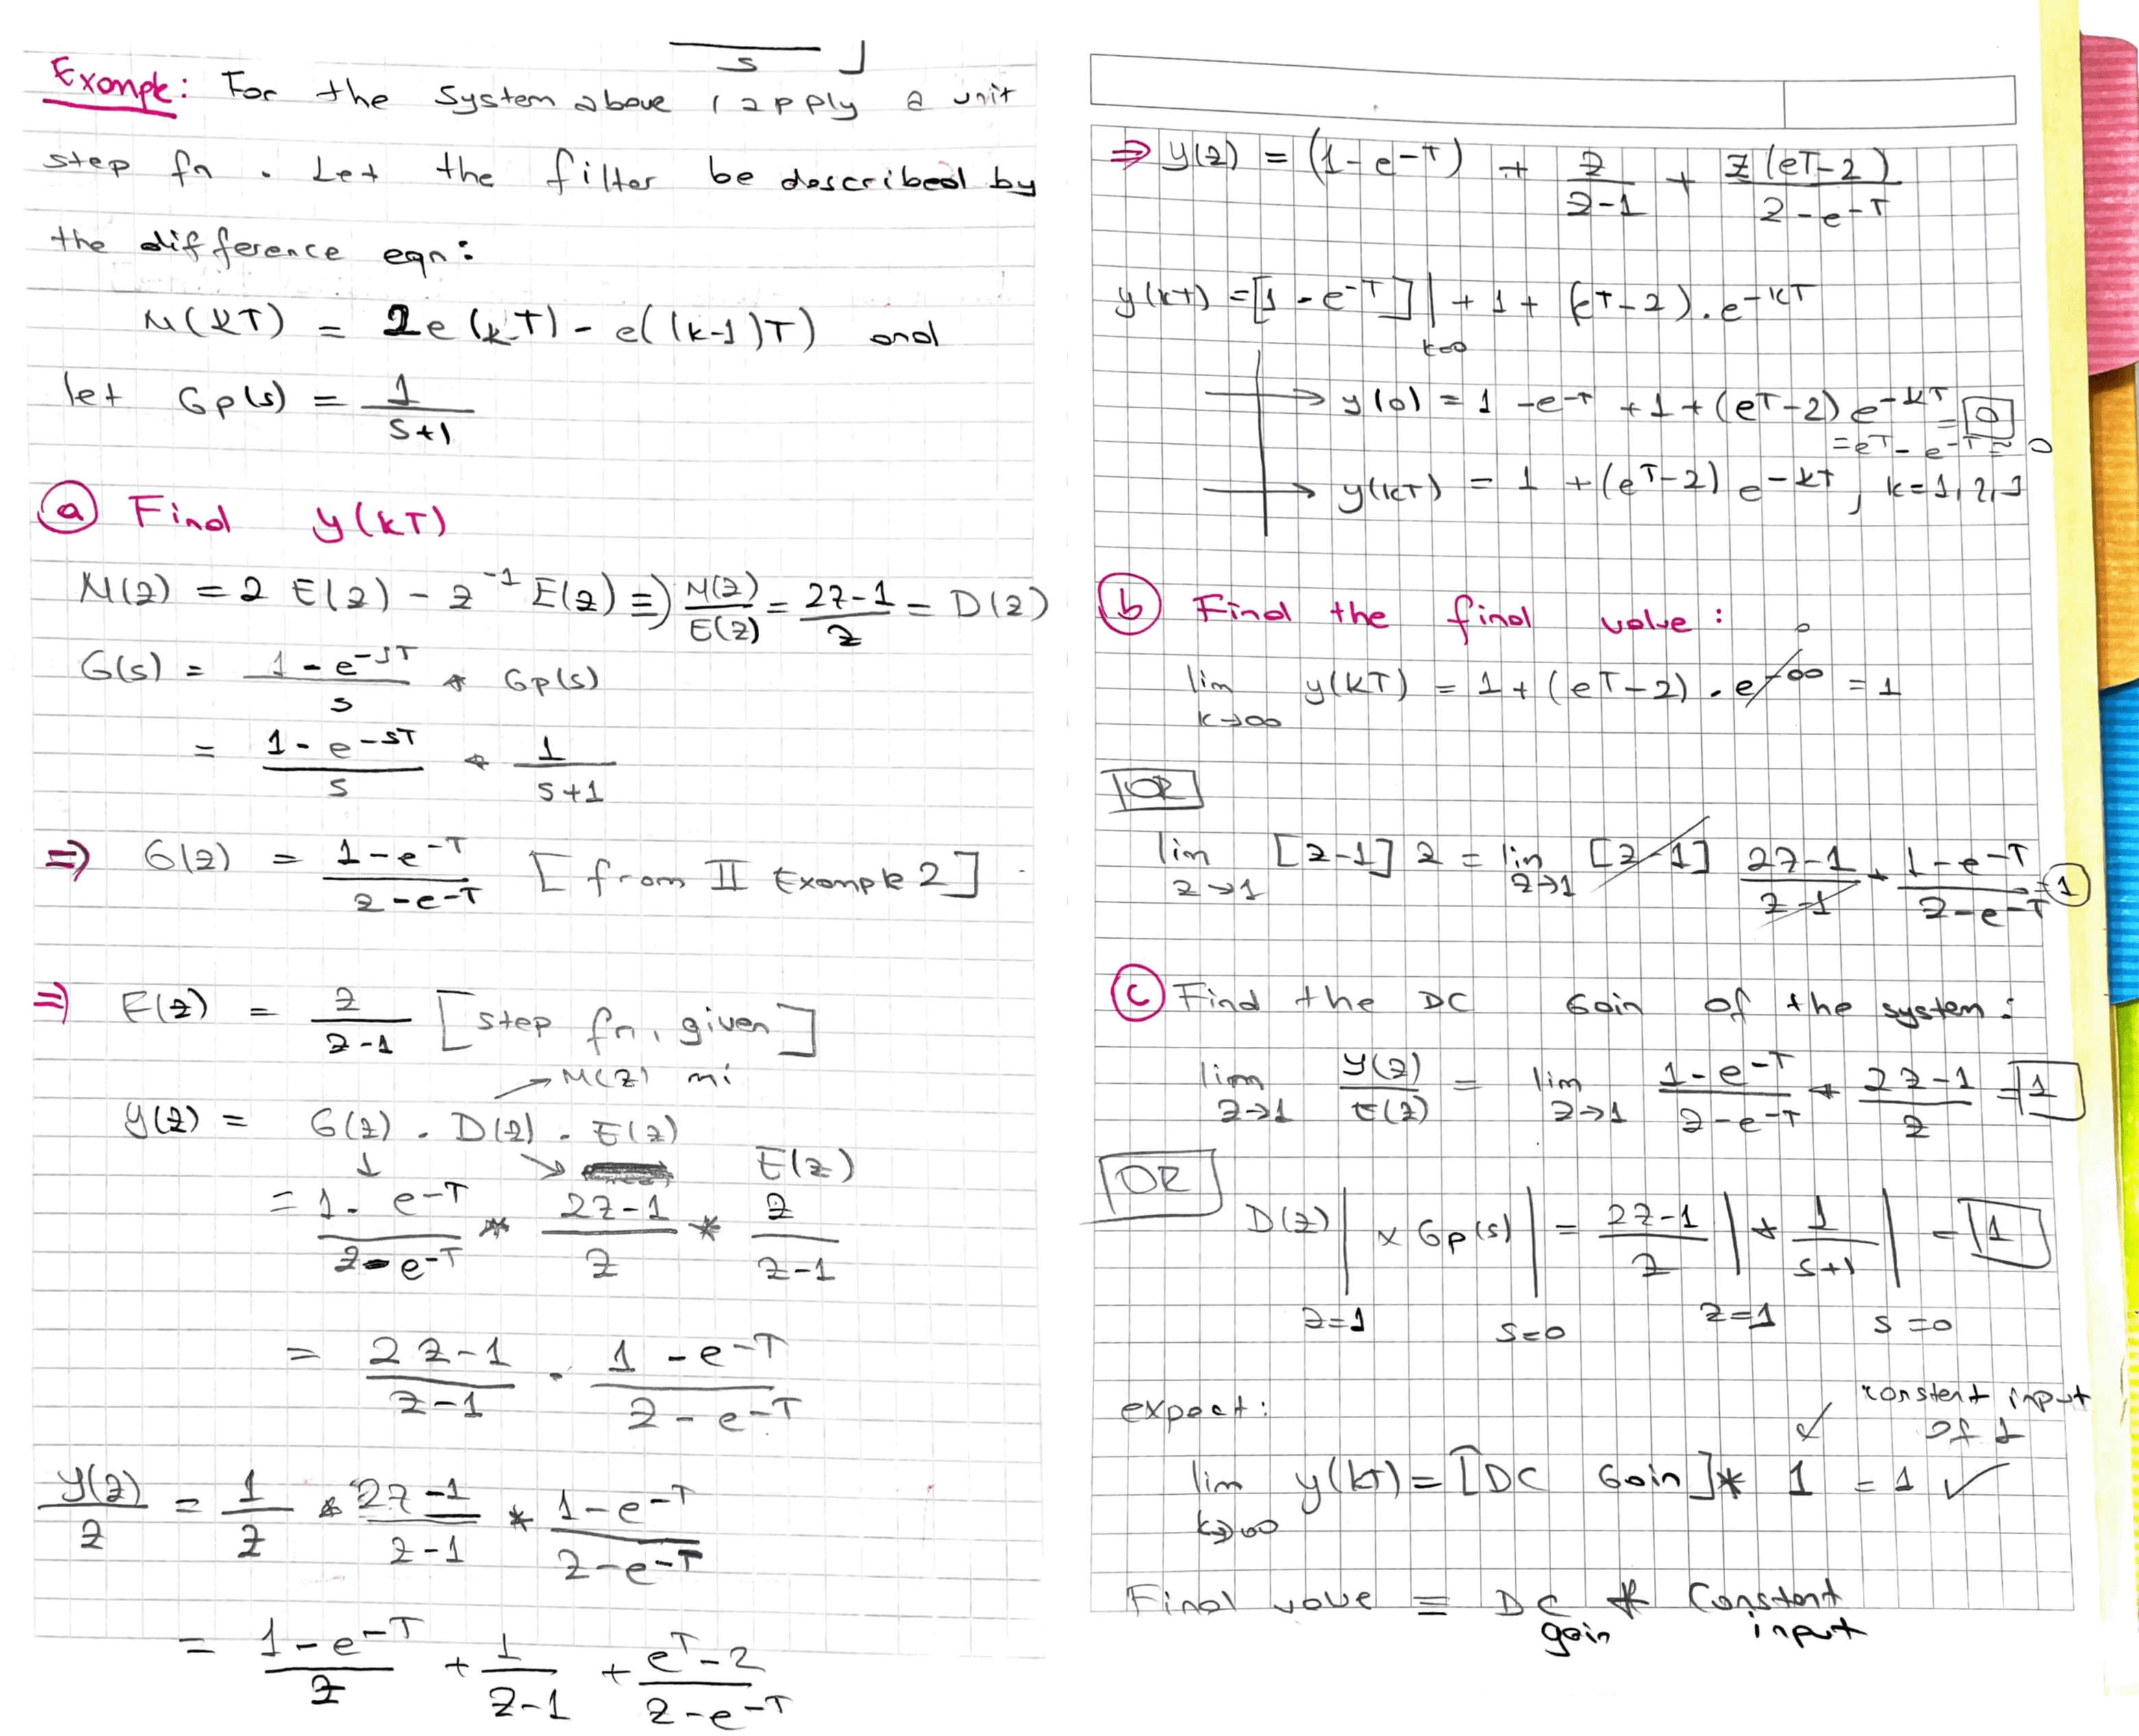 s ]
Example: For the system above, apply a unit
step fn. Let the filter be described by
the difference eqn:
M(kT) = 2e(kT) - e((k-1)T) and
let Gp(s) = 1/(s+1)
(a) Find y(kT)
M(z) = 2 E(z) - z^-1 E(z) ≡) M(z)/E(z) = (2z-1)/z = D(z)
G(s) = (1-e^-sT)/s * Gp(s)
= (1-e^-sT)/s * 1/(s+1)
⇒ G(z) = (1-e^-T)/(z-e^-T) [from II Example 2]
⇒ E(z) = z/(z-1) [step fn, given]
→ M(z) mi
y(z) = G(z) . D(z) . E(z)
↓ ↘ E(z)
= (1-e^-T)/(z-e^-T) * (2z-1)/z * z/(z-1)
= (2z-1)/(z-1) . (1-e^-T)/(z-e^-T)
y(z)/z = 1/z * (2z-1)/(z-1) * (1-e^-T)/(z-e^-T)
= (1-e^-T)/z + 1/(z-1) + (e^T-2)/(z-e^-T)
⇒ y(z) = (1-e^-T) + z/(z-1) + z(e^T-2)/(z-e^-T)
y(kT) = [1-e^-T]|k=0 + 1 + (e^T-2).e^-kT
→ y(0) = 1-e^-T + 1 + (e^T-2) e^-kT = 0
= e^T - e^-T ≈ 0
→ y(kT) = 1 + (e^T-2) e^-kT, k=1,2,3
(b) Find the final value:
lim k→∞ y(kT) = 1 + (e^T-2) . e^-∞ 0 = 1
OR
lim z→1 [z-1] z = lim z→1 [z-1] (2z-1)/(z-1) * (1-e^-T)/(z-e^-T) = 1
(c) Find the DC Gain of the system:
lim z→1 y(z)/E(z) = lim z→1 (1-e^-T)/(z-e^-T) * (2z-1)/z = 1
OR
D(z)|z=1 x Gp(s)|s=0 = (2z-1)/z|z=1 * 1/(s+1)|s=0 = 1
expect:
constant input
✓ of 1
lim k→∞ y(kT) = [DC Gain] * 1 = 1 ✓
Final value = DC gain * Constant input